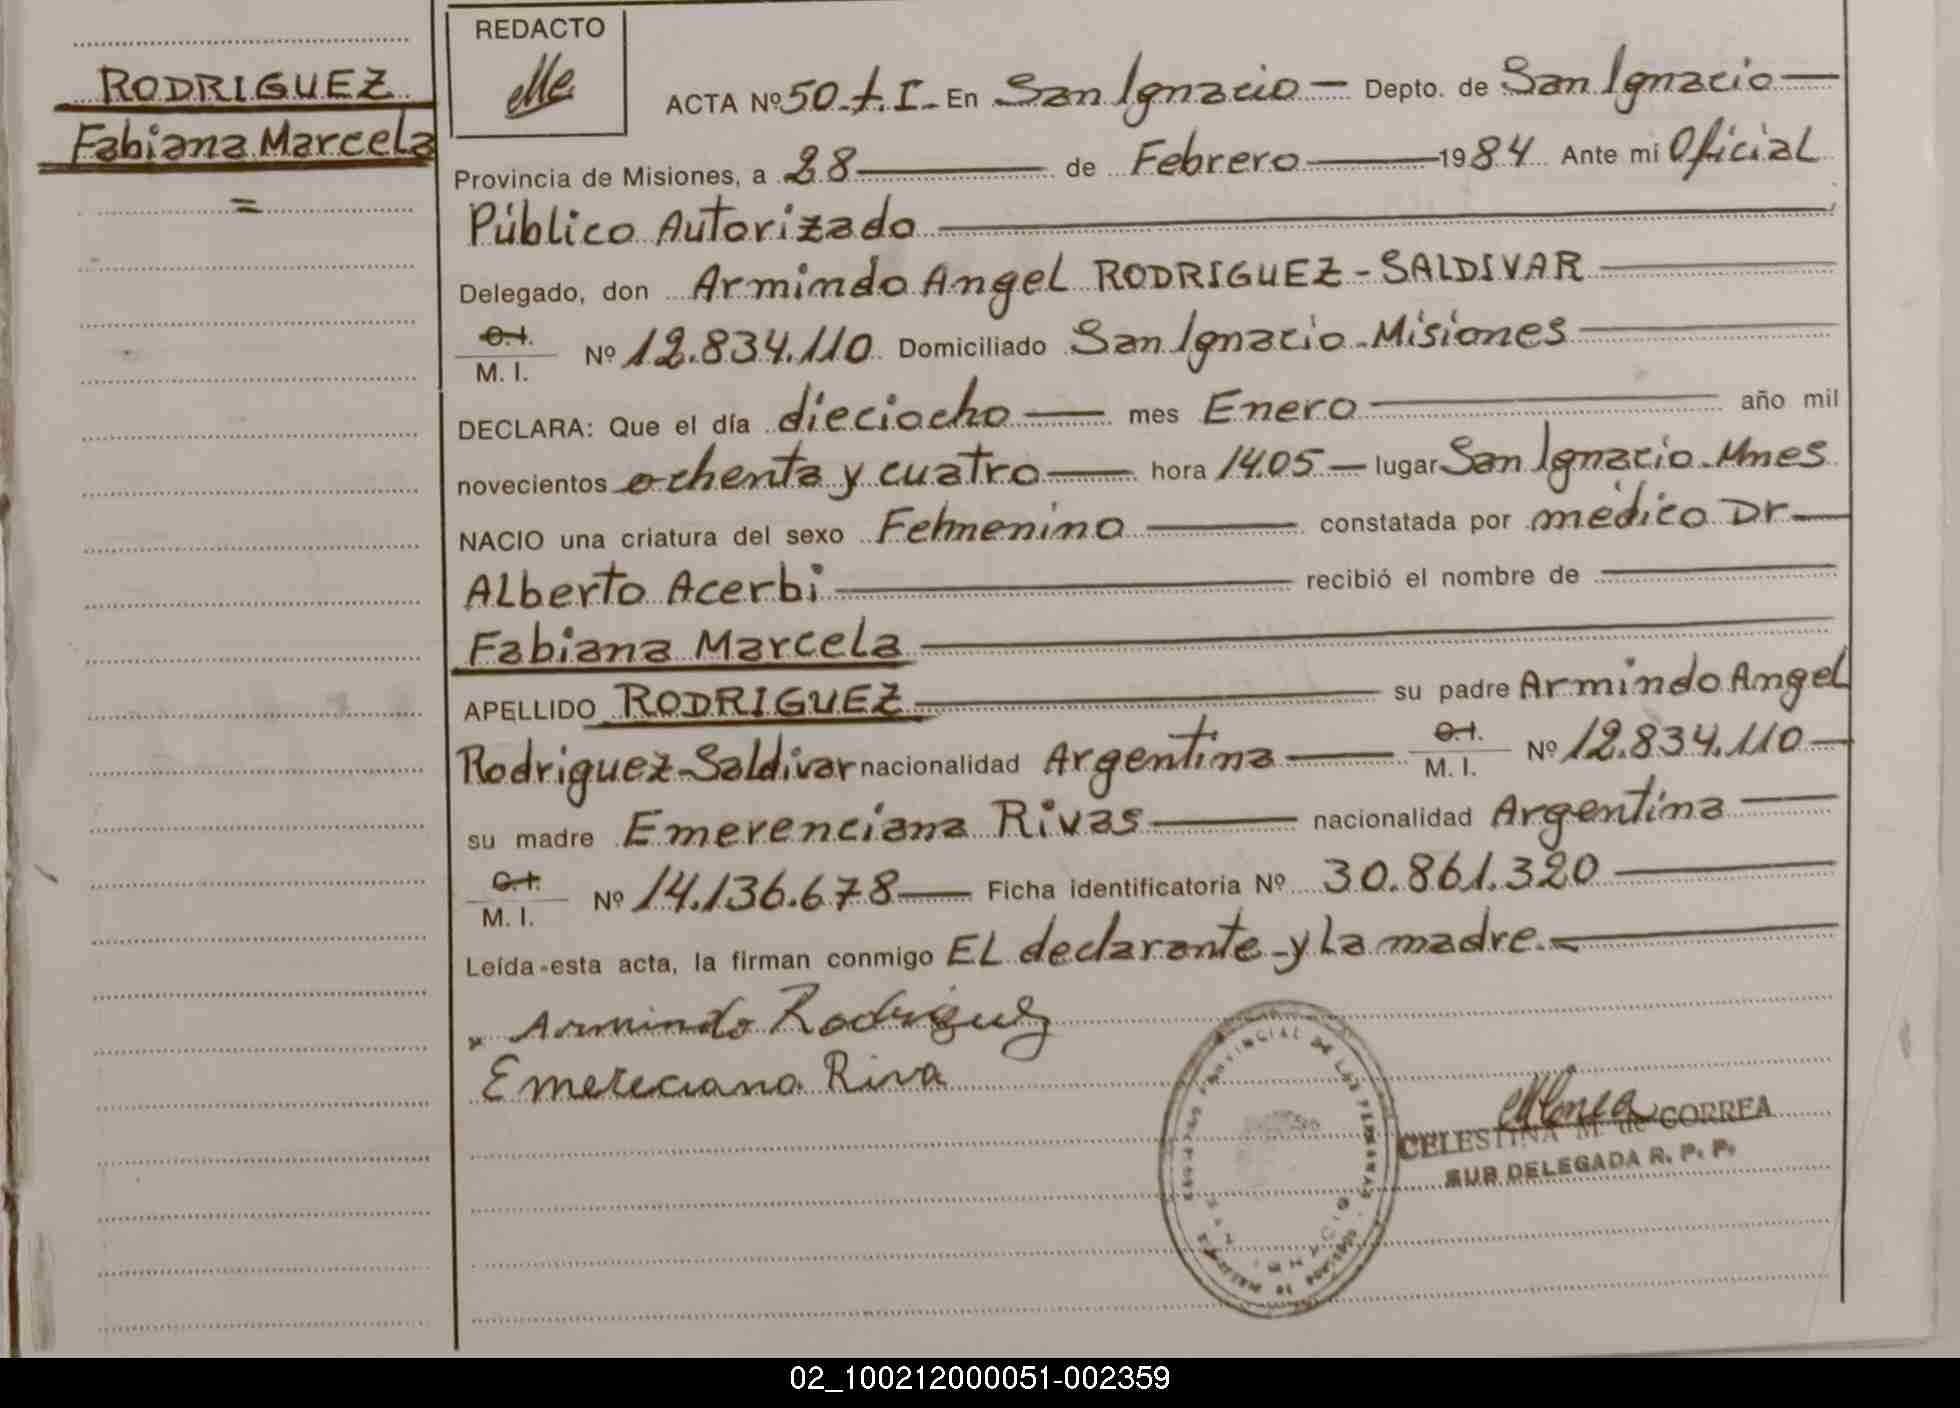 RODRIGUEZ
Fabiana Marcela
=
REDACTO
ACTA Nº 50-t.I.- En San Ignacio - Depto. de San Ignacio -
Provincia de Misiones, a 28 de Febrero 1984 Ante mi Oficial
Público Autorizado
Delegado, don Armindo Angel RODRIGUEZ-SALDIVAR
C.I.
M. I. Nº 12.834.110 Domiciliado San Ignacio-Misiones
DECLARA: Que el día dieciocho mes Enero año mil
novecientos ochenta y cuatro hora 14.05 - lugar San Ignacio-Mnes
NACIO una criatura del sexo Femenino constatada por médico Dr
Alberto Acerbi recibió el nombre de
Fabiana Marcela
APELLIDO RODRIGUEZ su padre Armindo Angel
Rodriguez-Saldivar nacionalidad Argentina C.I. M. I. Nº 12.834.110
su madre Emerenciana Rivas nacionalidad Argentina
C.I.
M. I. Nº 14.136.678 Ficha identificatoria Nº 30.861.320
Leída esta acta, la firman conmigo EL declarante-y La madre.-
Armindo Rodriguez
Emereciana Riva
CELESTINA M. de CORREA
SUB DELEGADA R. P. P.
PROVINCIAL DE LAS PERSONAS
02_100212000051-002359